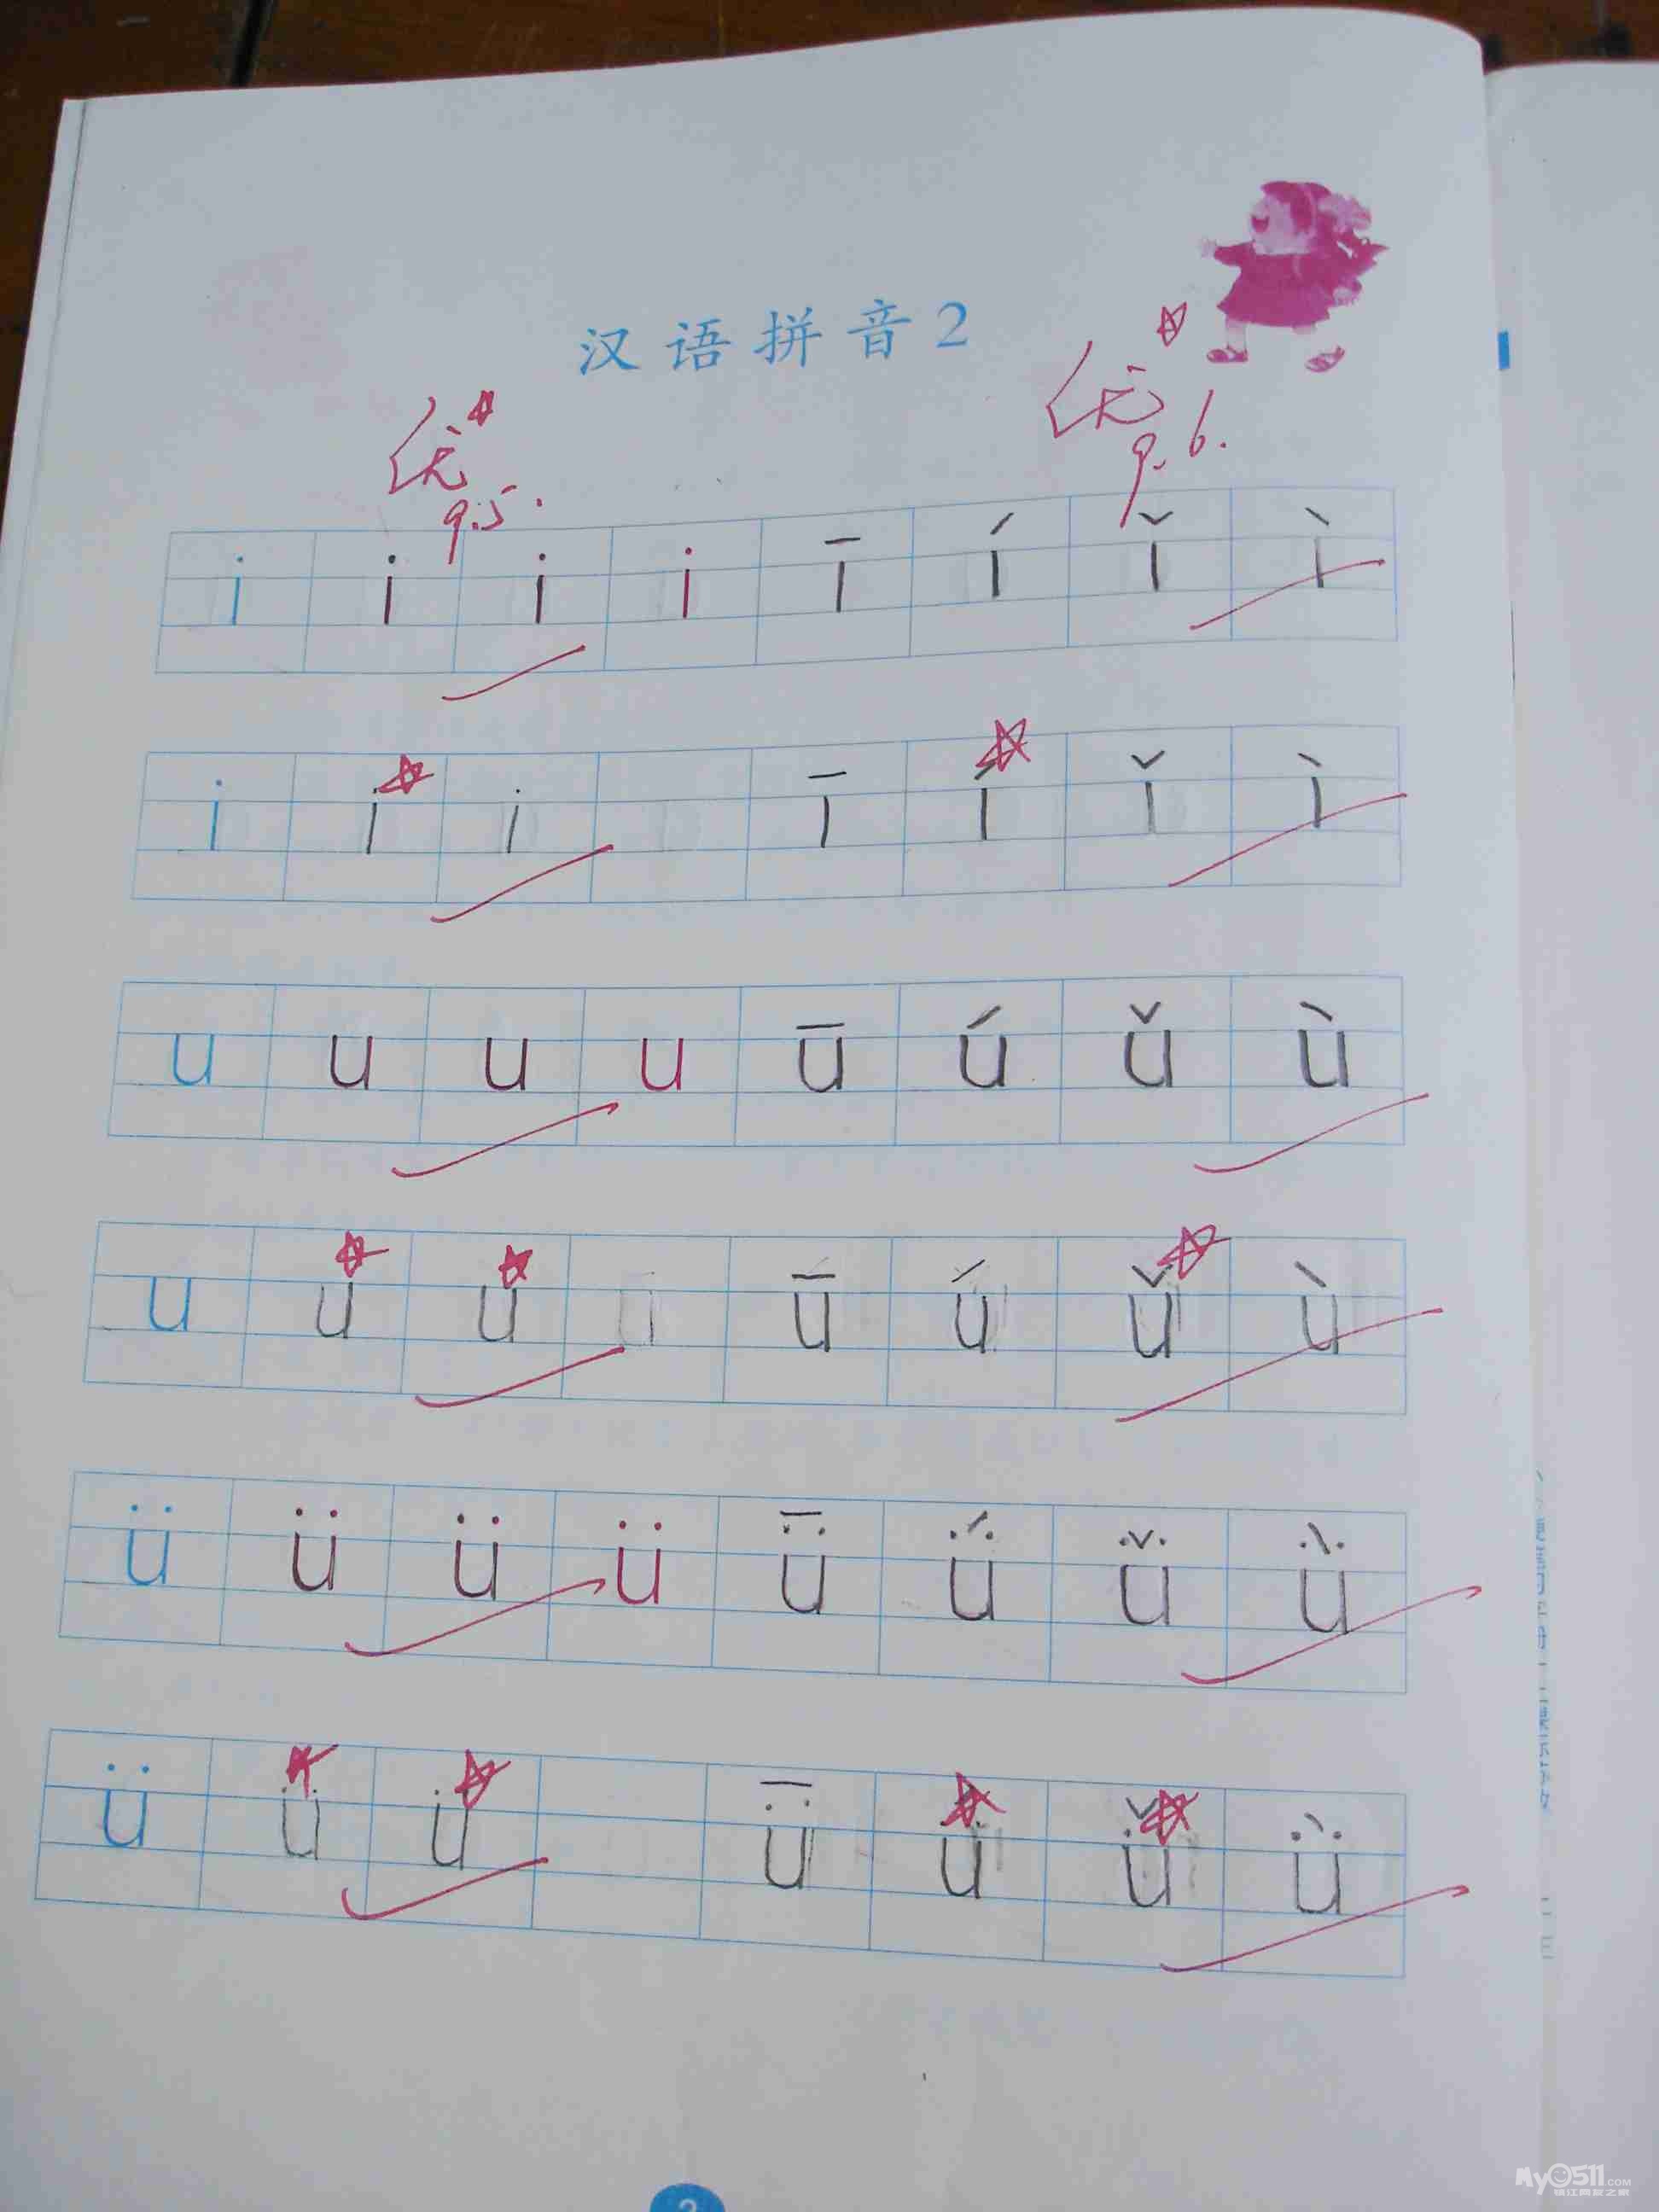 汉语拼音2
优 优
9.5. 9.6.
i i i i ī í ǐ ì
i i i ī í ǐ ì
u u u u ū ú ǔ ù
u u u ū ú ǔ ù
ü ü ü ü ǖ ǘ ǚ ǜ
ü ü ü ǖ ǘ ǚ ǜ
My0511.COM